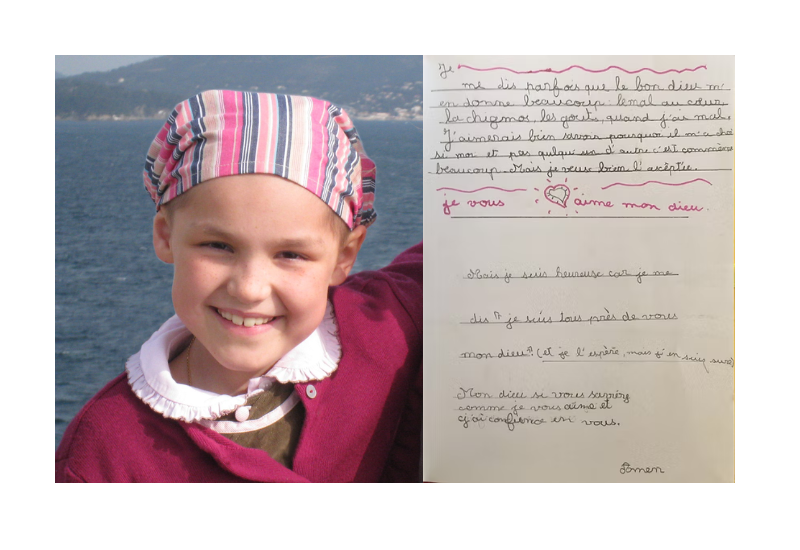 Je
me dis parfois que le bon dieu m'
en donne beaucoup : le mal au cœur
la chizmos, les goûts, quand j'ai mal.
J'aimerais bien savoir pourquoi il m'a choi
si moi et pas quelqu'un d'autre c'est
beaucoup. Mais je veux bien l'accèptée.
je vous aime mon dieu.
Mais je suis heureuse car je me
dis " je suis tous près de vous
mon dieu" (et je l'espère, mais j'en suis sure)
Mon dieu si vous saviez
comme je vous aime et
j'ai confience en vous.
Amen